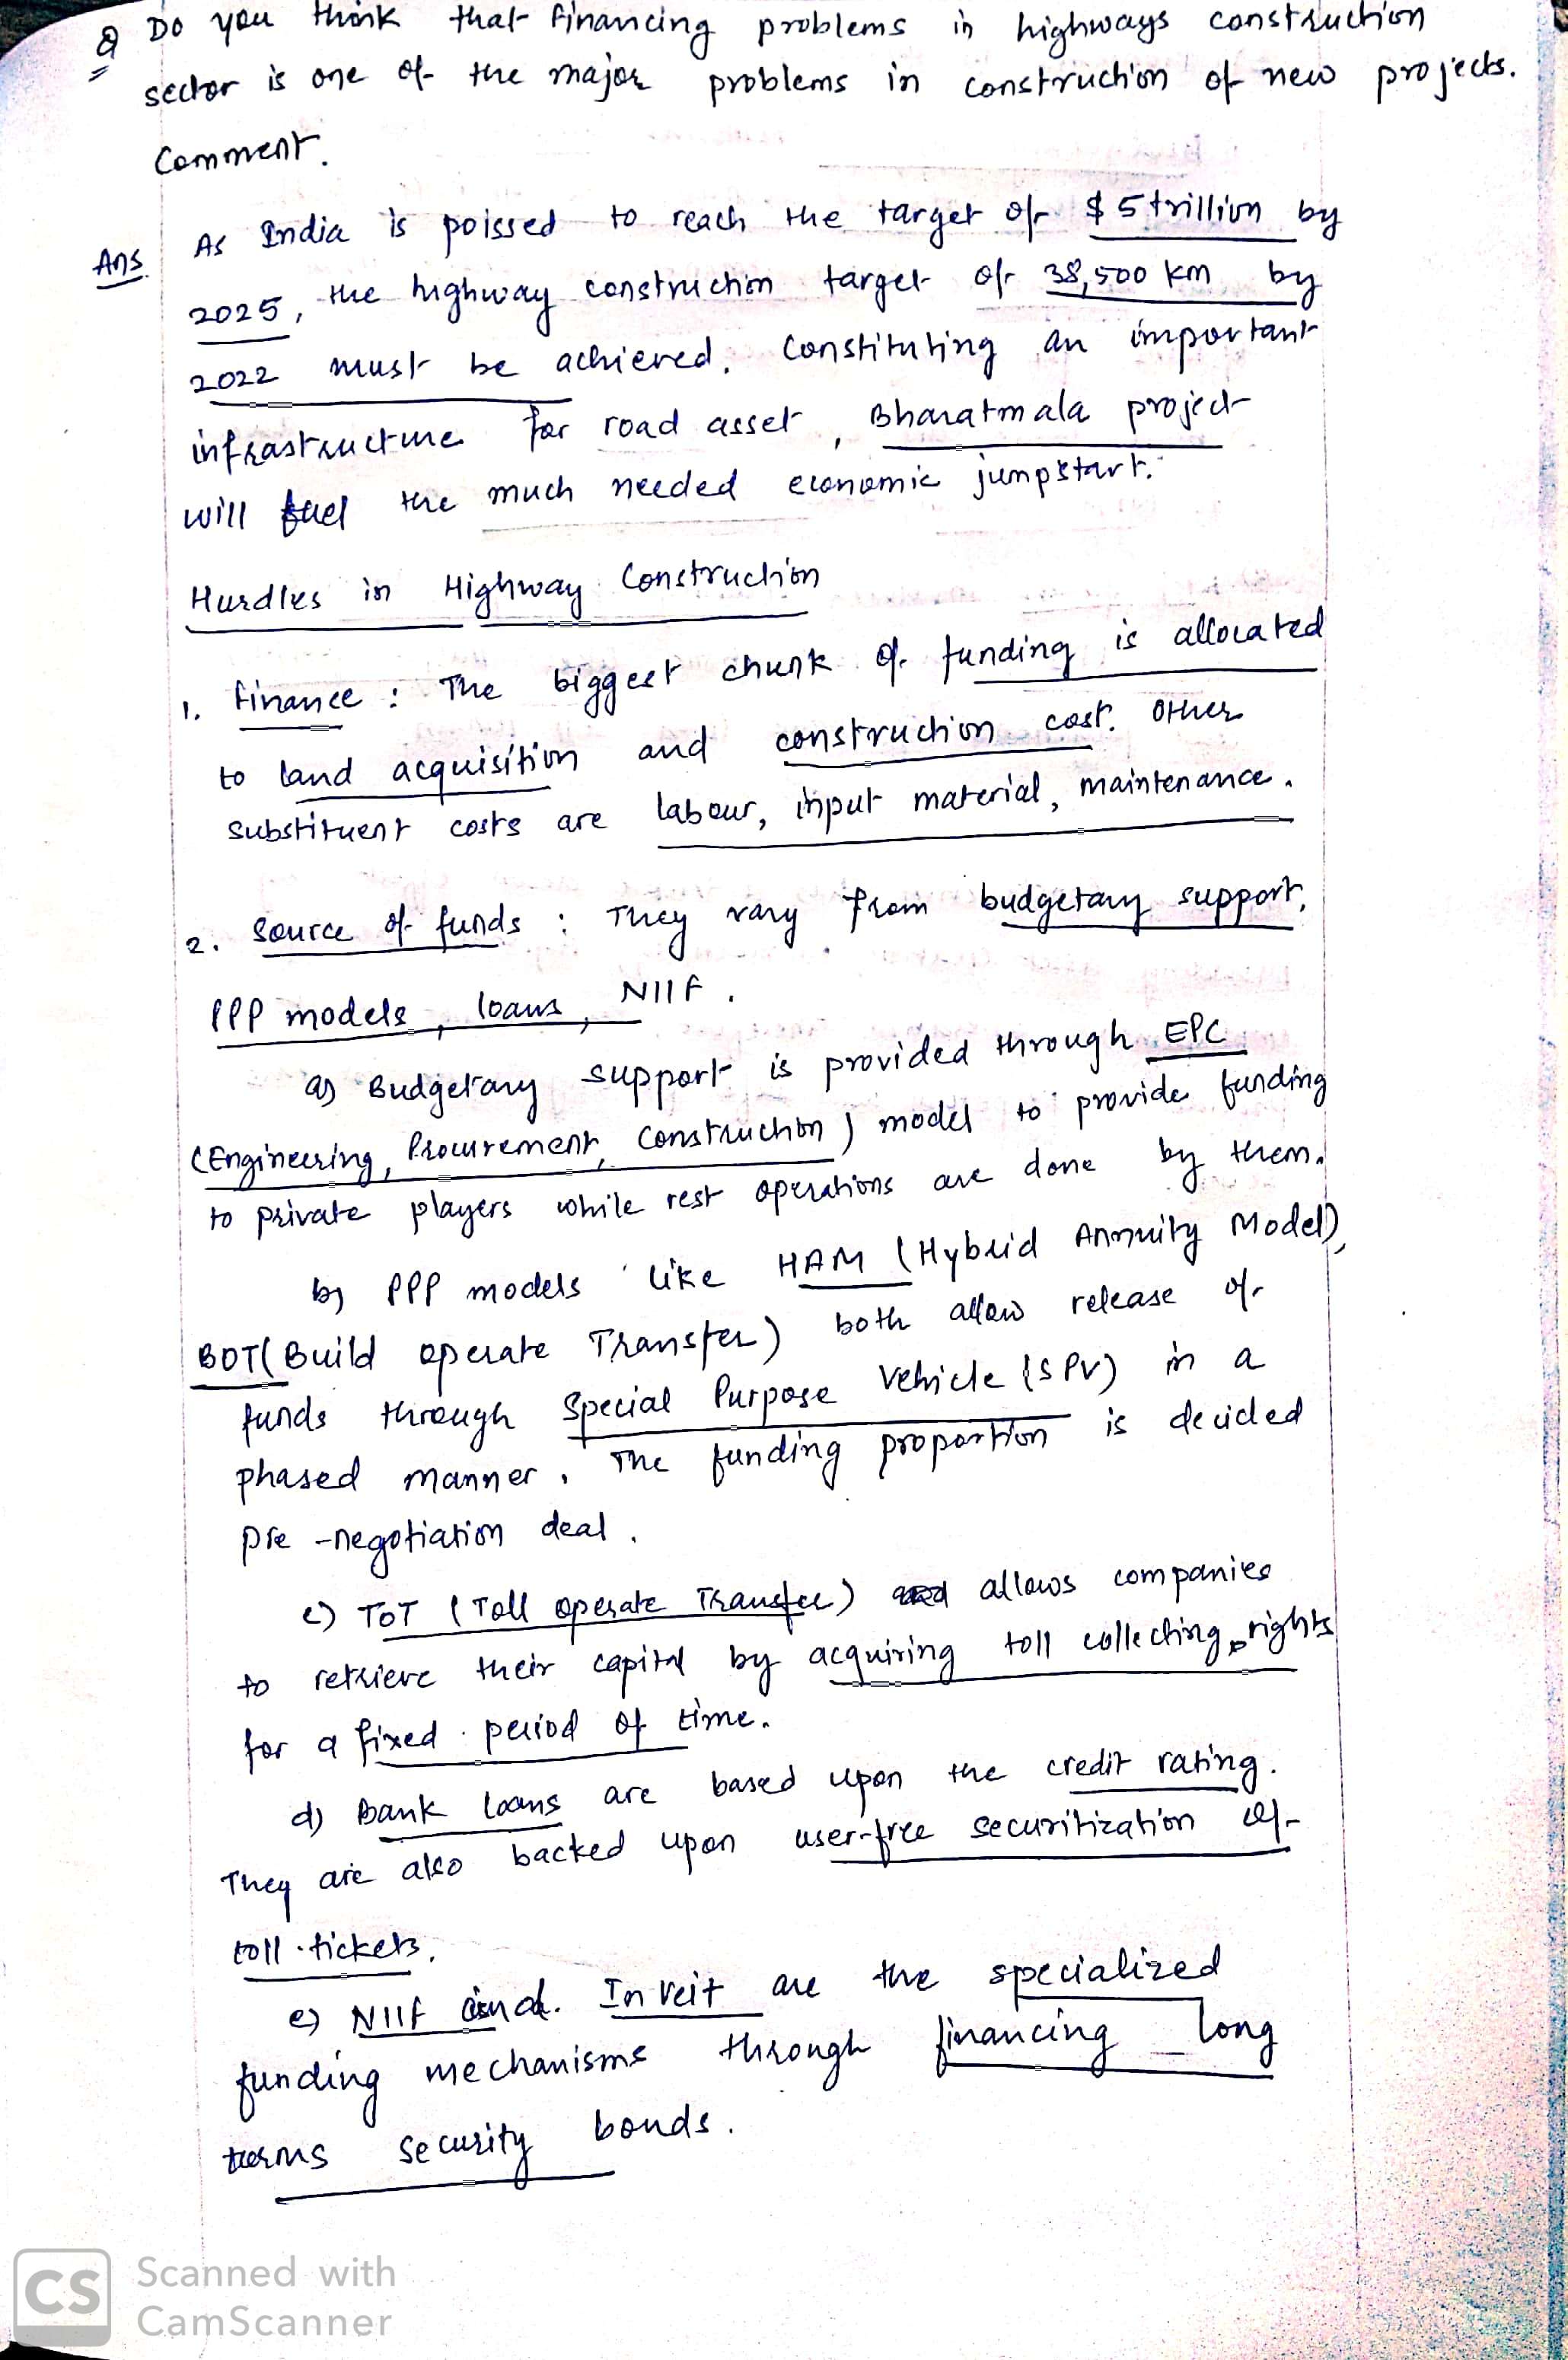 Q Do you think that financing problems in highways construction
sector is one of the major problems in construction of new projects.
Comment.
Ans. As India is poissed to reach the target of $ 5 trillion by
2025, the highway construction target of 38,500 km by
2022 must be achieved. Constituting an important
infrastructure for road asset, Bharatmala project
will fuel the much needed economic jumpstart.
Hurdles in Highway Construction
1. Finance : The biggest chunk of funding is allocated
to land acquisition and construction cost. Other
substituent costs are labour, input material, maintenance.
2. Source of funds : They vary from budgetary support,
PPP models, loans, NIIF.
a) Budgetary support is provided through EPC
(Engineering, Procurement, Construction) model to provide funding
to private players while rest operations are done by them.
b) PPP models like HAM (Hybrid Annuity Model),
BOT (Build operate Transfer) both allow release of
funds through Special Purpose Vehicle (SPV) in a
phased manner. The funding proportion is decided
pre-negotiation deal.
c) TOT (Toll operate Transfer) allows companies
to retrieve their capital by acquiring toll collecting rights
for a fixed period of time.
d) Bank loans are based upon the credit rating.
They are also backed upon user-free securitization of
toll tickets.
e) NIIF and InVeit are the specialized
funding mechanisms through financing long
terms security bonds.
CS Scanned with
CamScanner